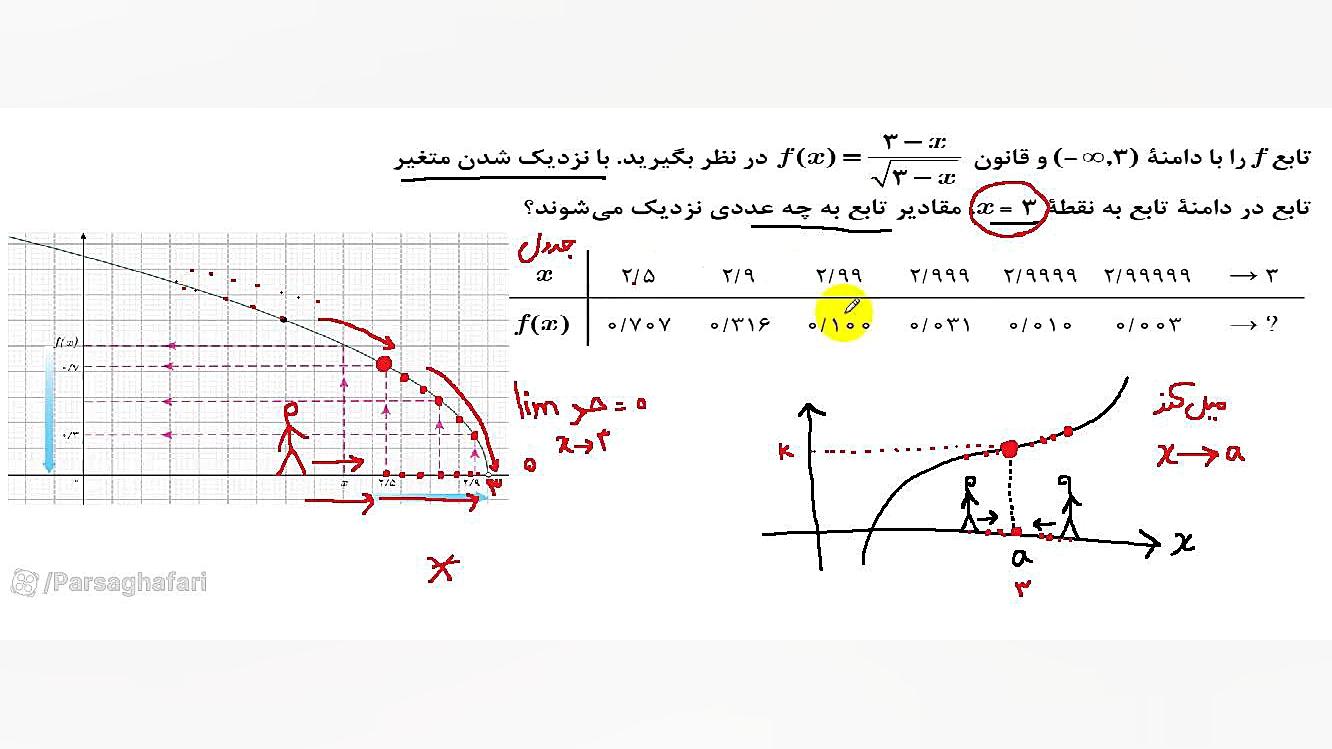 تابع f را با دامنهٔ (-∞,۳) و قانون f(x) = ۳ - x / √۳ - x در نظر بگیرید. با نزدیک شدن متغیر
تابع در دامنهٔ تابع به نقطهٔ x = ۳ مقادیر تابع به چه عددی نزدیک می‌شوند؟
جدول
x ۲/۵ ۲/۹ ۲/۹۹ ۲/۹۹۹ ۲/۹۹۹۹ ۲/۹۹۹۹۹ → ۳
f(x) ۰/۷۰۷ ۰/۳۱۶ ۰/۱۰۰ ۰/۰۳۱ ۰/۰۱۰ ۰/۰۰۳ → ?
f(x)
۰/۷
۰/۳
x ۲/۵ ۲/۹ ۳
lim = ۰
x → ۳
۰
میل کند
x → a
K
x
a
۳
/Parsaghafari